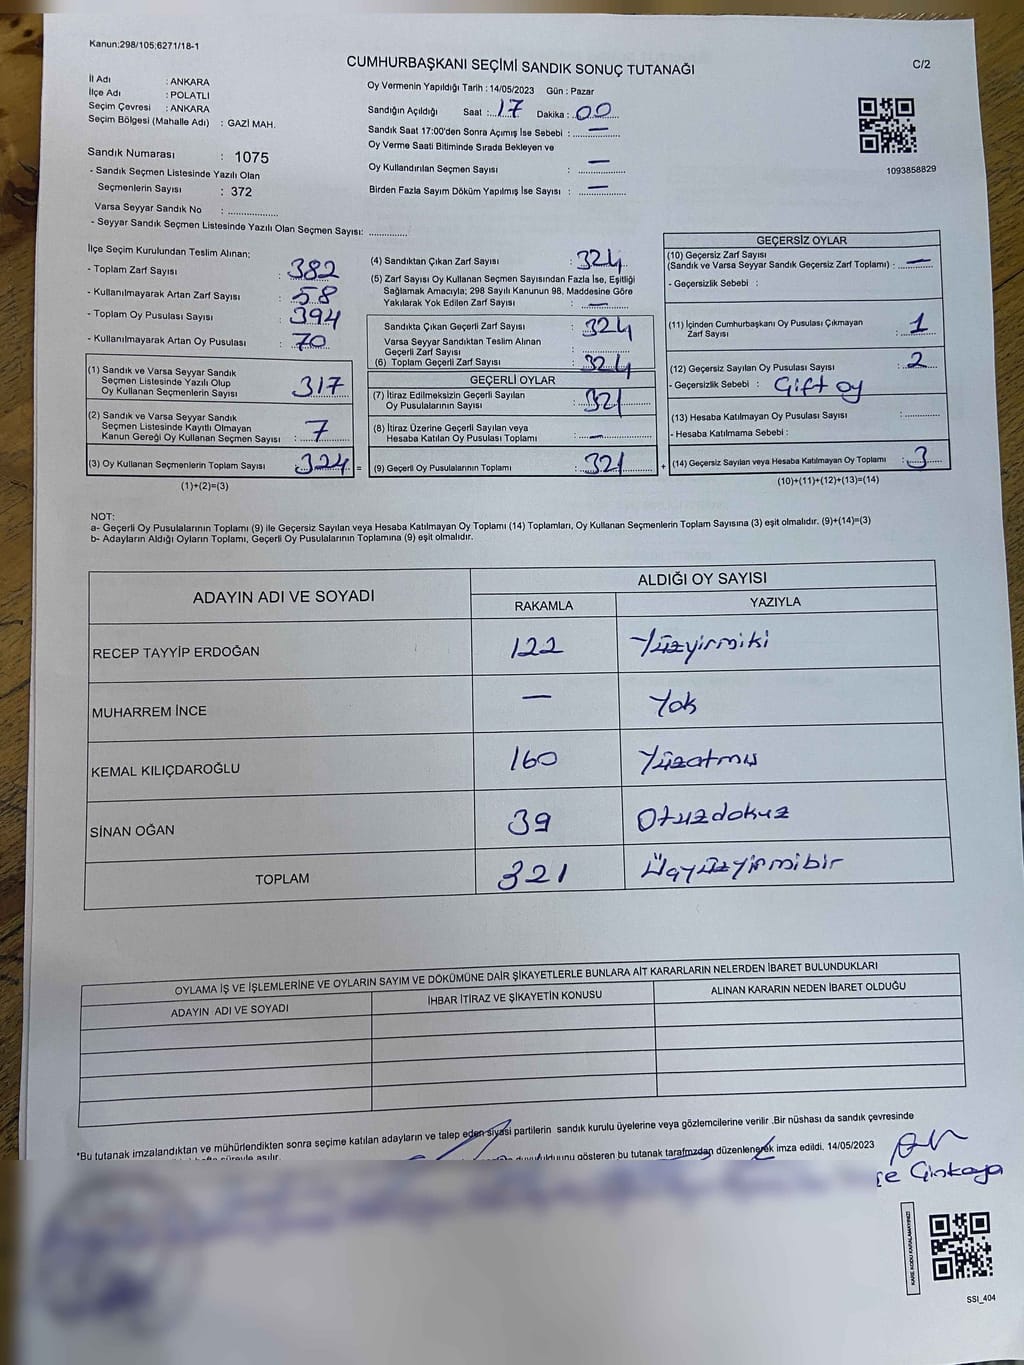 Kanun:298/105;6271/18-1
CUMHURBAŞKANI SEÇİMİ SANDIK SONUÇ TUTANAĞI
C/2
İl Adı : ANKARA
İlçe Adı : POLATLI
Seçim Çevresi : ANKARA
Seçim Bölgesi (Mahalle Adı) : GAZİ MAH.
Sandık Numarası : 1075
- Sandık Seçmen Listesinde Yazılı Olan
Seçmenlerin Sayısı : 372
Varsa Seyyar Sandık No : ................
- Seyyar Sandık Seçmen Listesinde Yazılı Olan Seçmen Sayısı: ............
Oy Vermenin Yapıldığı Tarih : 14/05/2023 Gün : Pazar
Sandığın Açıldığı Saat : 17 Dakika : 00
Sandık Saat 17:00'den Sonra Açımış İse Sebebi : —
Oy Verme Saati Bitiminde Sırada Bekleyen ve
Oy Kullandırılan Seçmen Sayısı : —
Birden Fazla Sayım Döküm Yapılmış İse Sayısı : —
1093858829
İlçe Seçim Kurulundan Teslim Alınan:
- Toplam Zarf Sayısı : 382
- Kullanılmayarak Artan Zarf Sayısı : 58
- Toplam Oy Pusulası Sayısı : 394
- Kullanılmayarak Artan Oy Pusulası : 70
(1) Sandık ve Varsa Seyyar Sandık
Seçmen Listesinde Yazılı Olup
Oy Kullanan Seçmenlerin Sayısı : 317
(2) Sandık ve Varsa Seyyar Sandık
Seçmen Listesinde Kayıtlı Olmayan
Kanun Gereği Oy Kullanan Seçmen Sayısı : 7
(3) Oy Kullanan Seçmenlerin Toplam Sayısı : 324 =
(1)+(2)=(3)
(4) Sandıktan Çıkan Zarf Sayısı : 324
(5) Zarf Sayısı Oy Kullanan Seçmen Sayısından Fazla İse, Eşitliği
Sağlamak Amacıyla; 298 Sayılı Kanunun 98. Maddesine Göre
Yakılarak Yok Edilen Zarf Sayısı : —
Sandıkta Çıkan Geçerli Zarf Sayısı : 324
Varsa Seyyar Sandıktan Teslim Alınan
Geçerli Zarf Sayısı : ................
(6) Toplam Geçerli Zarf Sayısı : 324
GEÇERLİ OYLAR
(7) İtiraz Edilmeksizin Geçerli Sayılan
Oy Pusulalarının Sayısı : 321
(8) İtiraz Üzerine Geçerli Sayılan veya
Hesaba Katılan Oy Pusulası Toplamı : —
(9) Geçerli Oy Pusulalarının Toplamı : 321 +
GEÇERSİZ OYLAR
(10) Geçersiz Zarf Sayısı
(Sandık ve Varsa Seyyar Sandık Geçersiz Zarf Toplamı) : —
- Geçersizlik Sebebi :
(11) İçinden Cumhurbaşkanı Oy Pusulası Çıkmayan
Zarf Sayısı : 1
(12) Geçersiz Sayılan Oy Pusulası Sayısı : 2
- Geçersizlik Sebebi : Çift oy
(13) Hesaba Katılmayan Oy Pusulası Sayısı : ............
- Hesaba Katılmama Sebebi :
(14) Geçersiz Sayılan veya Hesaba Katılmayan Oy Toplamı : 3
(10)+(11)+(12)+(13)=(14)
NOT:
a- Geçerli Oy Pusulalarının Toplamı (9) ile Geçersiz Sayılan veya Hesaba Katılmayan Oy Toplamı (14) Toplamları, Oy Kullanan Seçmenlerin Toplam Sayısına (3) eşit olmalıdır. (9)+(14)=(3)
b- Adayların Aldığı Oyların Toplamı, Geçerli Oy Pusulalarının Toplamına (9) eşit olmalıdır.
ADAYIN ADI VE SOYADI
ALDIĞI OY SAYISI
RAKAMLA YAZIYLA
RECEP TAYYİP ERDOĞAN 122 Yüzyirmiki
MUHARREM İNCE — Yok
KEMAL KILIÇDAROĞLU 160 Yüzatmış
SİNAN OĞAN 39 Otuzdokuz
TOPLAM 321 Üçyüzyirmibir
OYLAMA İŞ VE İŞLEMLERİNE VE OYLARIN SAYIM VE DÖKÜMÜNE DAİR ŞİKAYETLERLE BUNLARA AİT KARARLARIN NELERDEN İBARET BULUNDUKLARI
ADAYIN ADI VE SOYADI İHBAR İTİRAZ VE ŞİKAYETİN KONUSU ALINAN KARARIN NEDEN İBARET OLDUĞU
*Bu tutanak imzalandıktan ve mühürlendikten sonra seçime katılan adayların ve talep eden siyasi partilerin sandık kurulu üyelerine veya gözlemcilerine verilir .Bir nüshası da sandık çevresinde
süreyle asılır. duyulduğunu gösteren bu tutanak tarafımızdan düzenlenerek imza edildi. 14/05/2023
KARE KODU KARALAMAYINIZ!
SSI_404